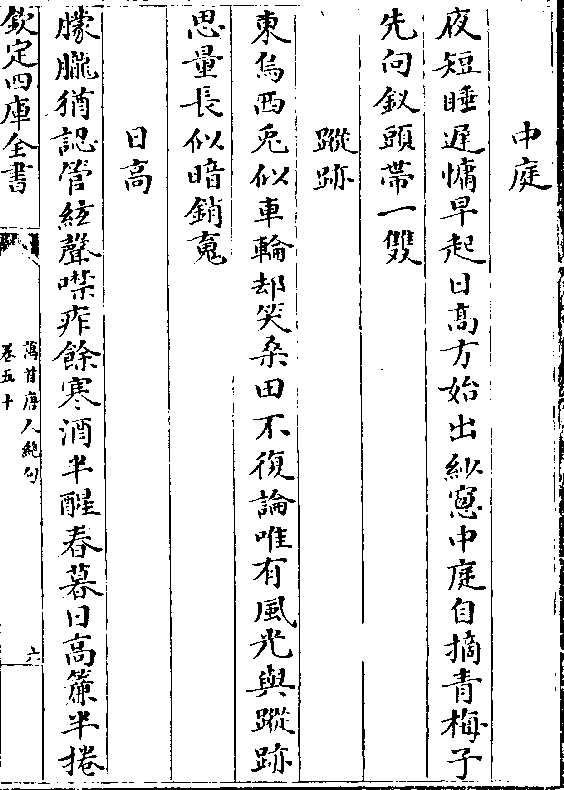 中庭
夜短睡遲慵早起日髙方始出紗窻中庭自摘青梅子
先向釵頭帶一雙
蹤跡
東烏西兎似車輪却笑桑田不復論唯有風光與蹤跡
思量長似暗銷䰟
日高
朦朧猶認管絃聲噤痄餘寒酒半醒春暮日高簾半捲
欽定四庫全書
萬首唐人絶句
卷五十
六